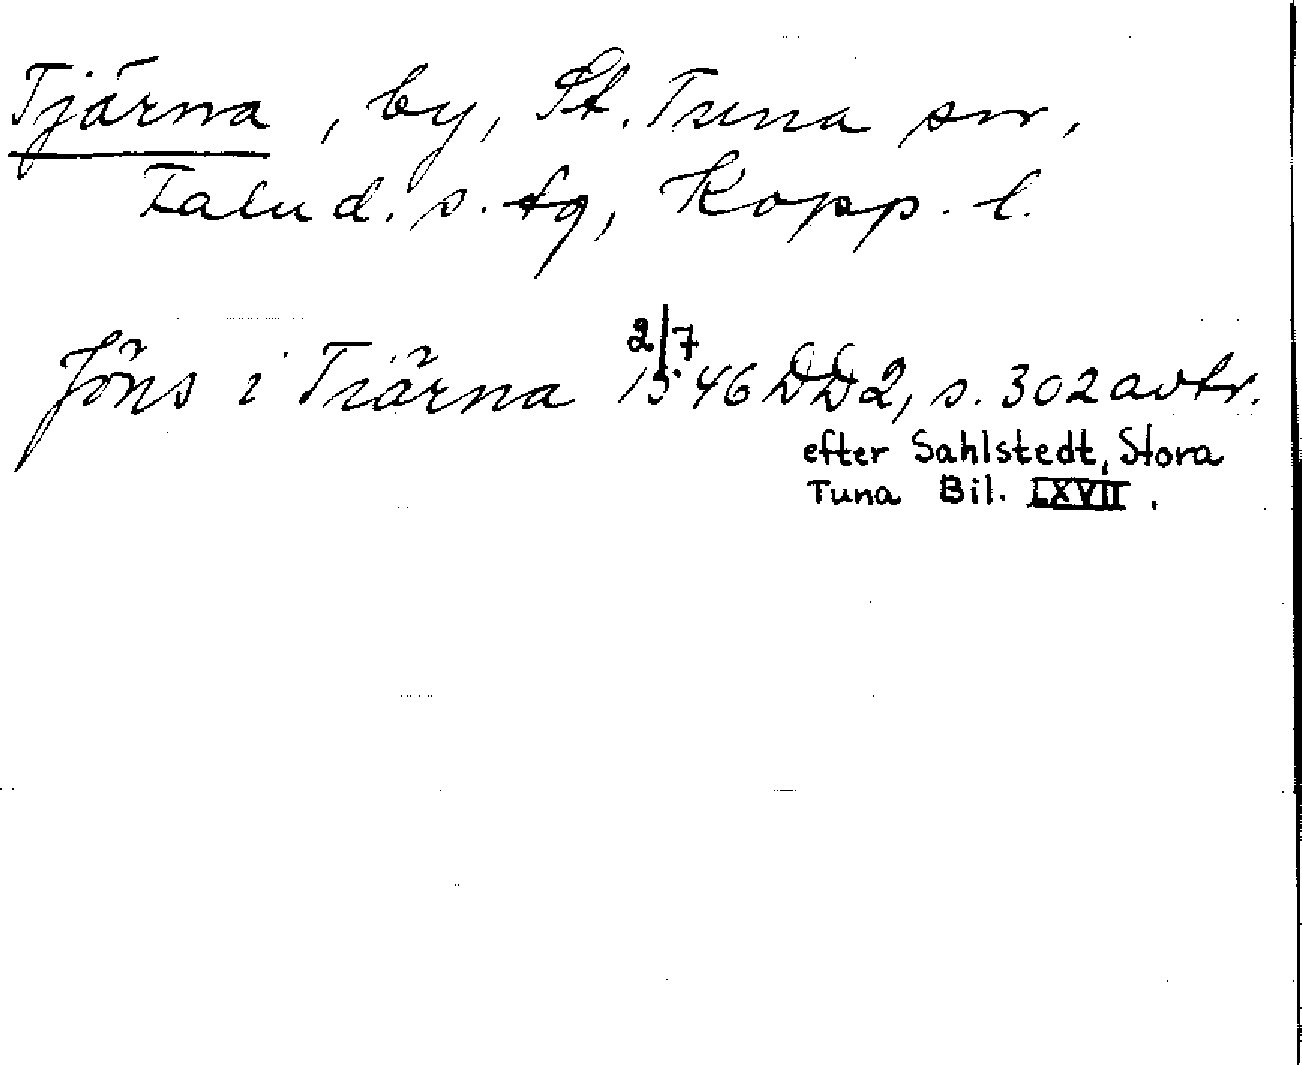 Tjärna, by, St. Tuna sn,
Falu d. s. fg, Kopp. l.
Jöns i Tiärna 2/7 1546 DD2, s. 302 avtr.
efter Sahlstedt, Stora
Tuna Bil. LXVII.